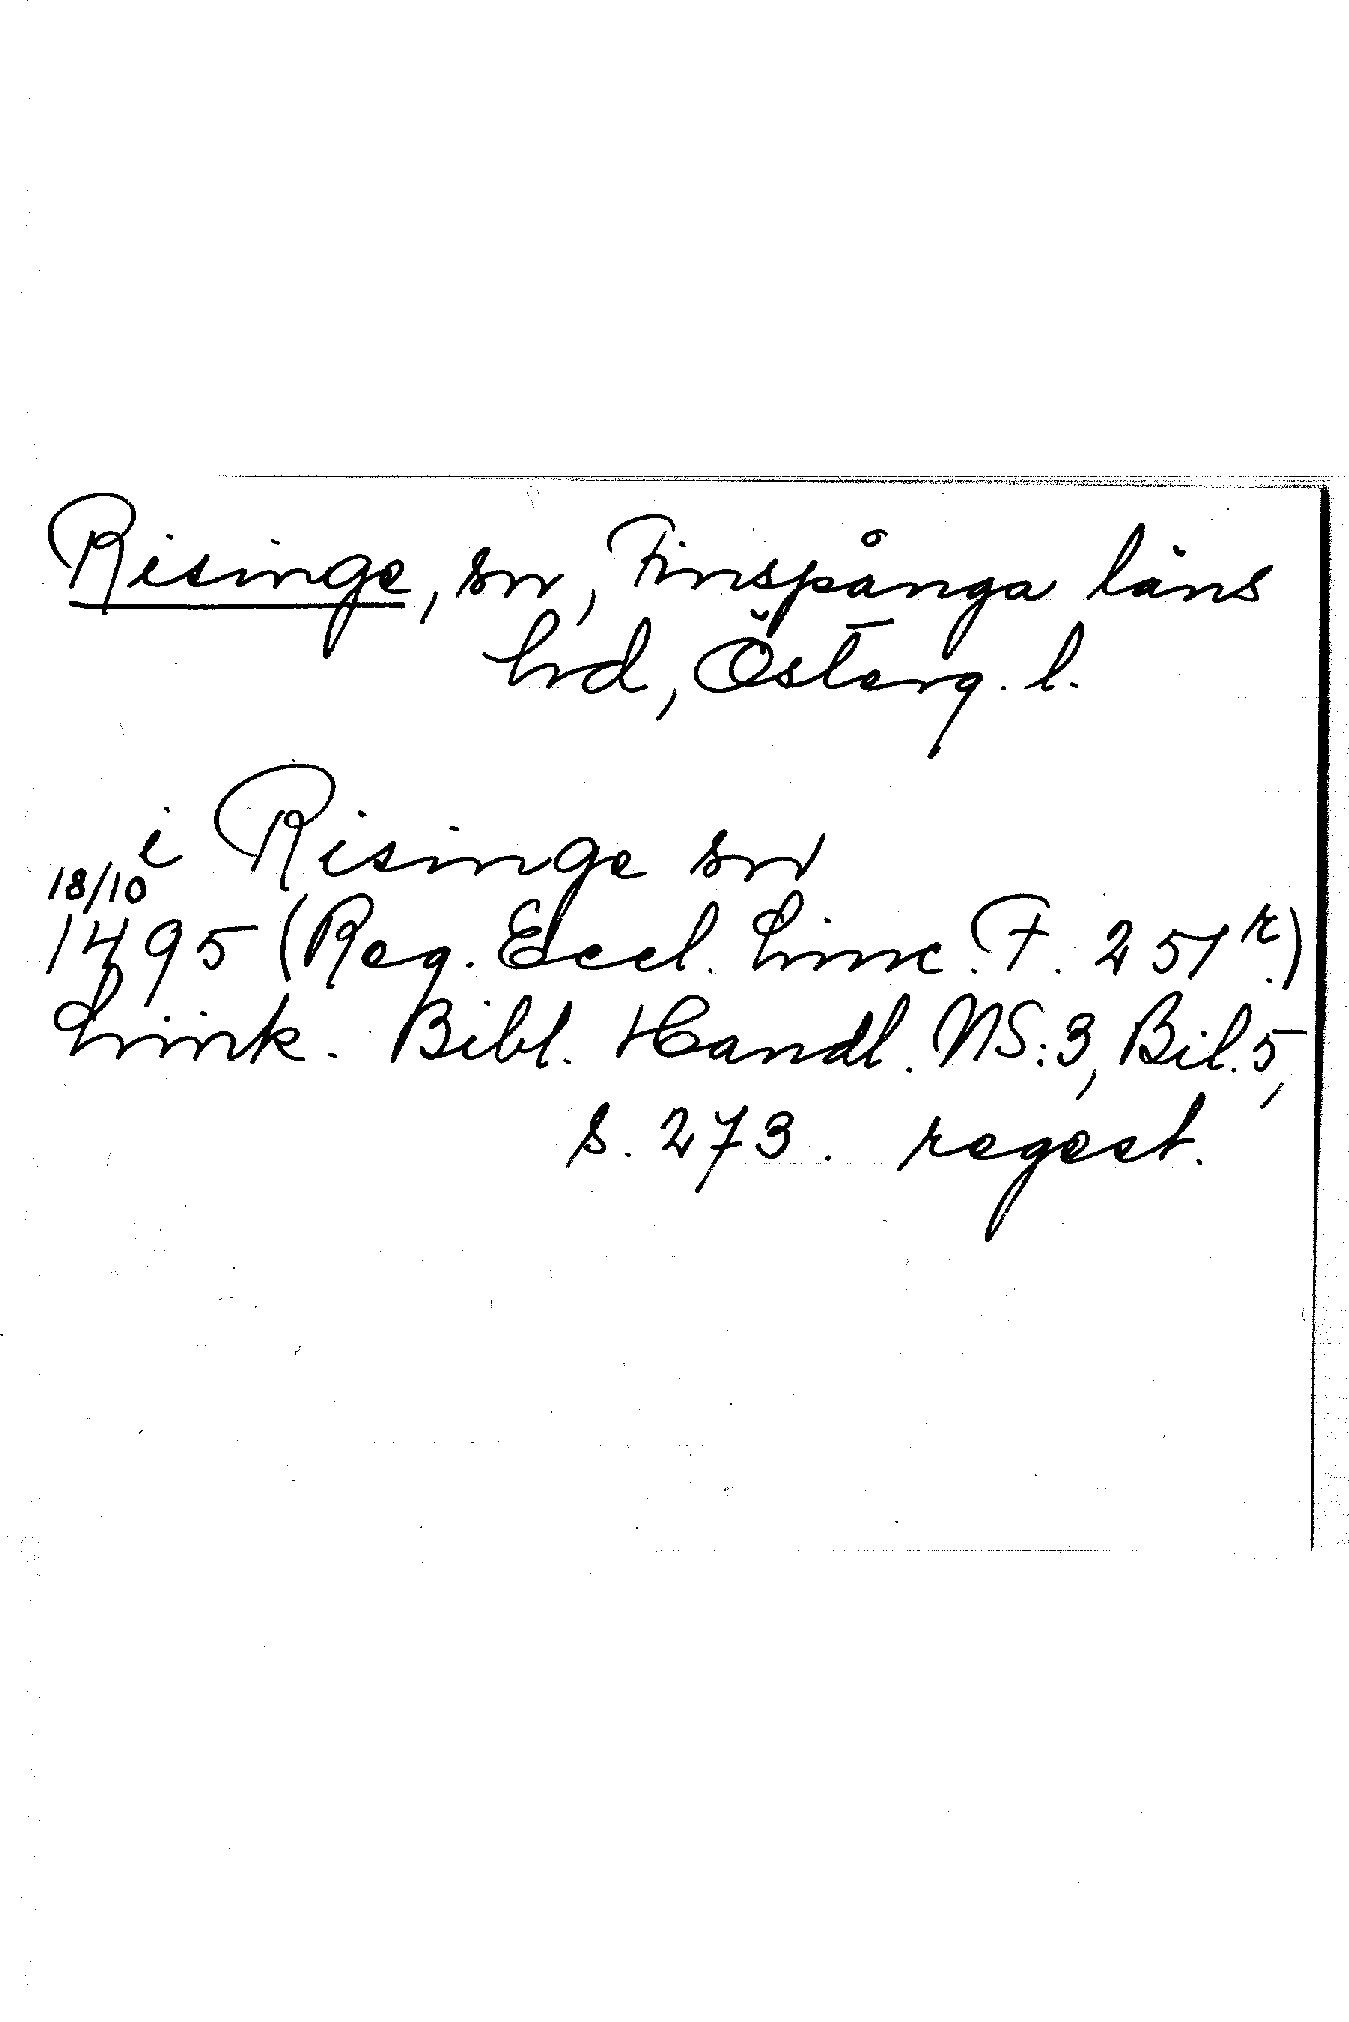 Risinge, sn, Finspånga läns
hd, Österg. l.
i Risinge sn
18/10
1495 (Reg. Eccl. Linc. F. 251r.)
Link. Bibl. Handl. NS:3, Bil. 5,
s. 273. regest.